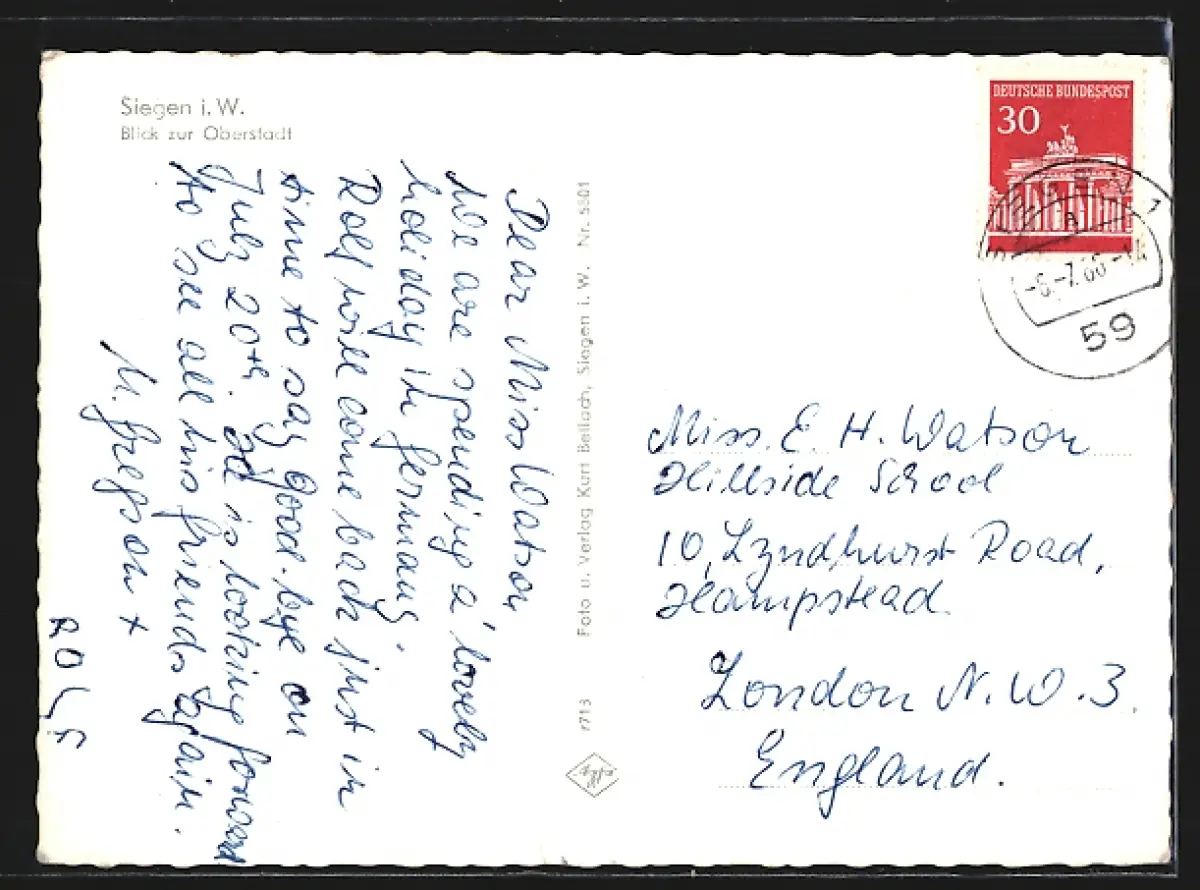 Siegen i. W.
Blick zur Oberstadt
Dear Miss Watson,
We are spending a lovely
holiday in Germany.
Rolf will come back just in
time to say good-bye on
July 20th. He is looking forward
to see all his friends again.
M. Gregson +
ROLF
Foto u. Verlag Kurt Bellach, Siegen i. W. Nr. 5501
7713
DEUTSCHE BUNDESPOST
30
-6.-7.66-14
59
Miss. E. H. Watson
Hillside School
10, Lyndhurst Road,
Hampstead.
London N.W.3.
England.